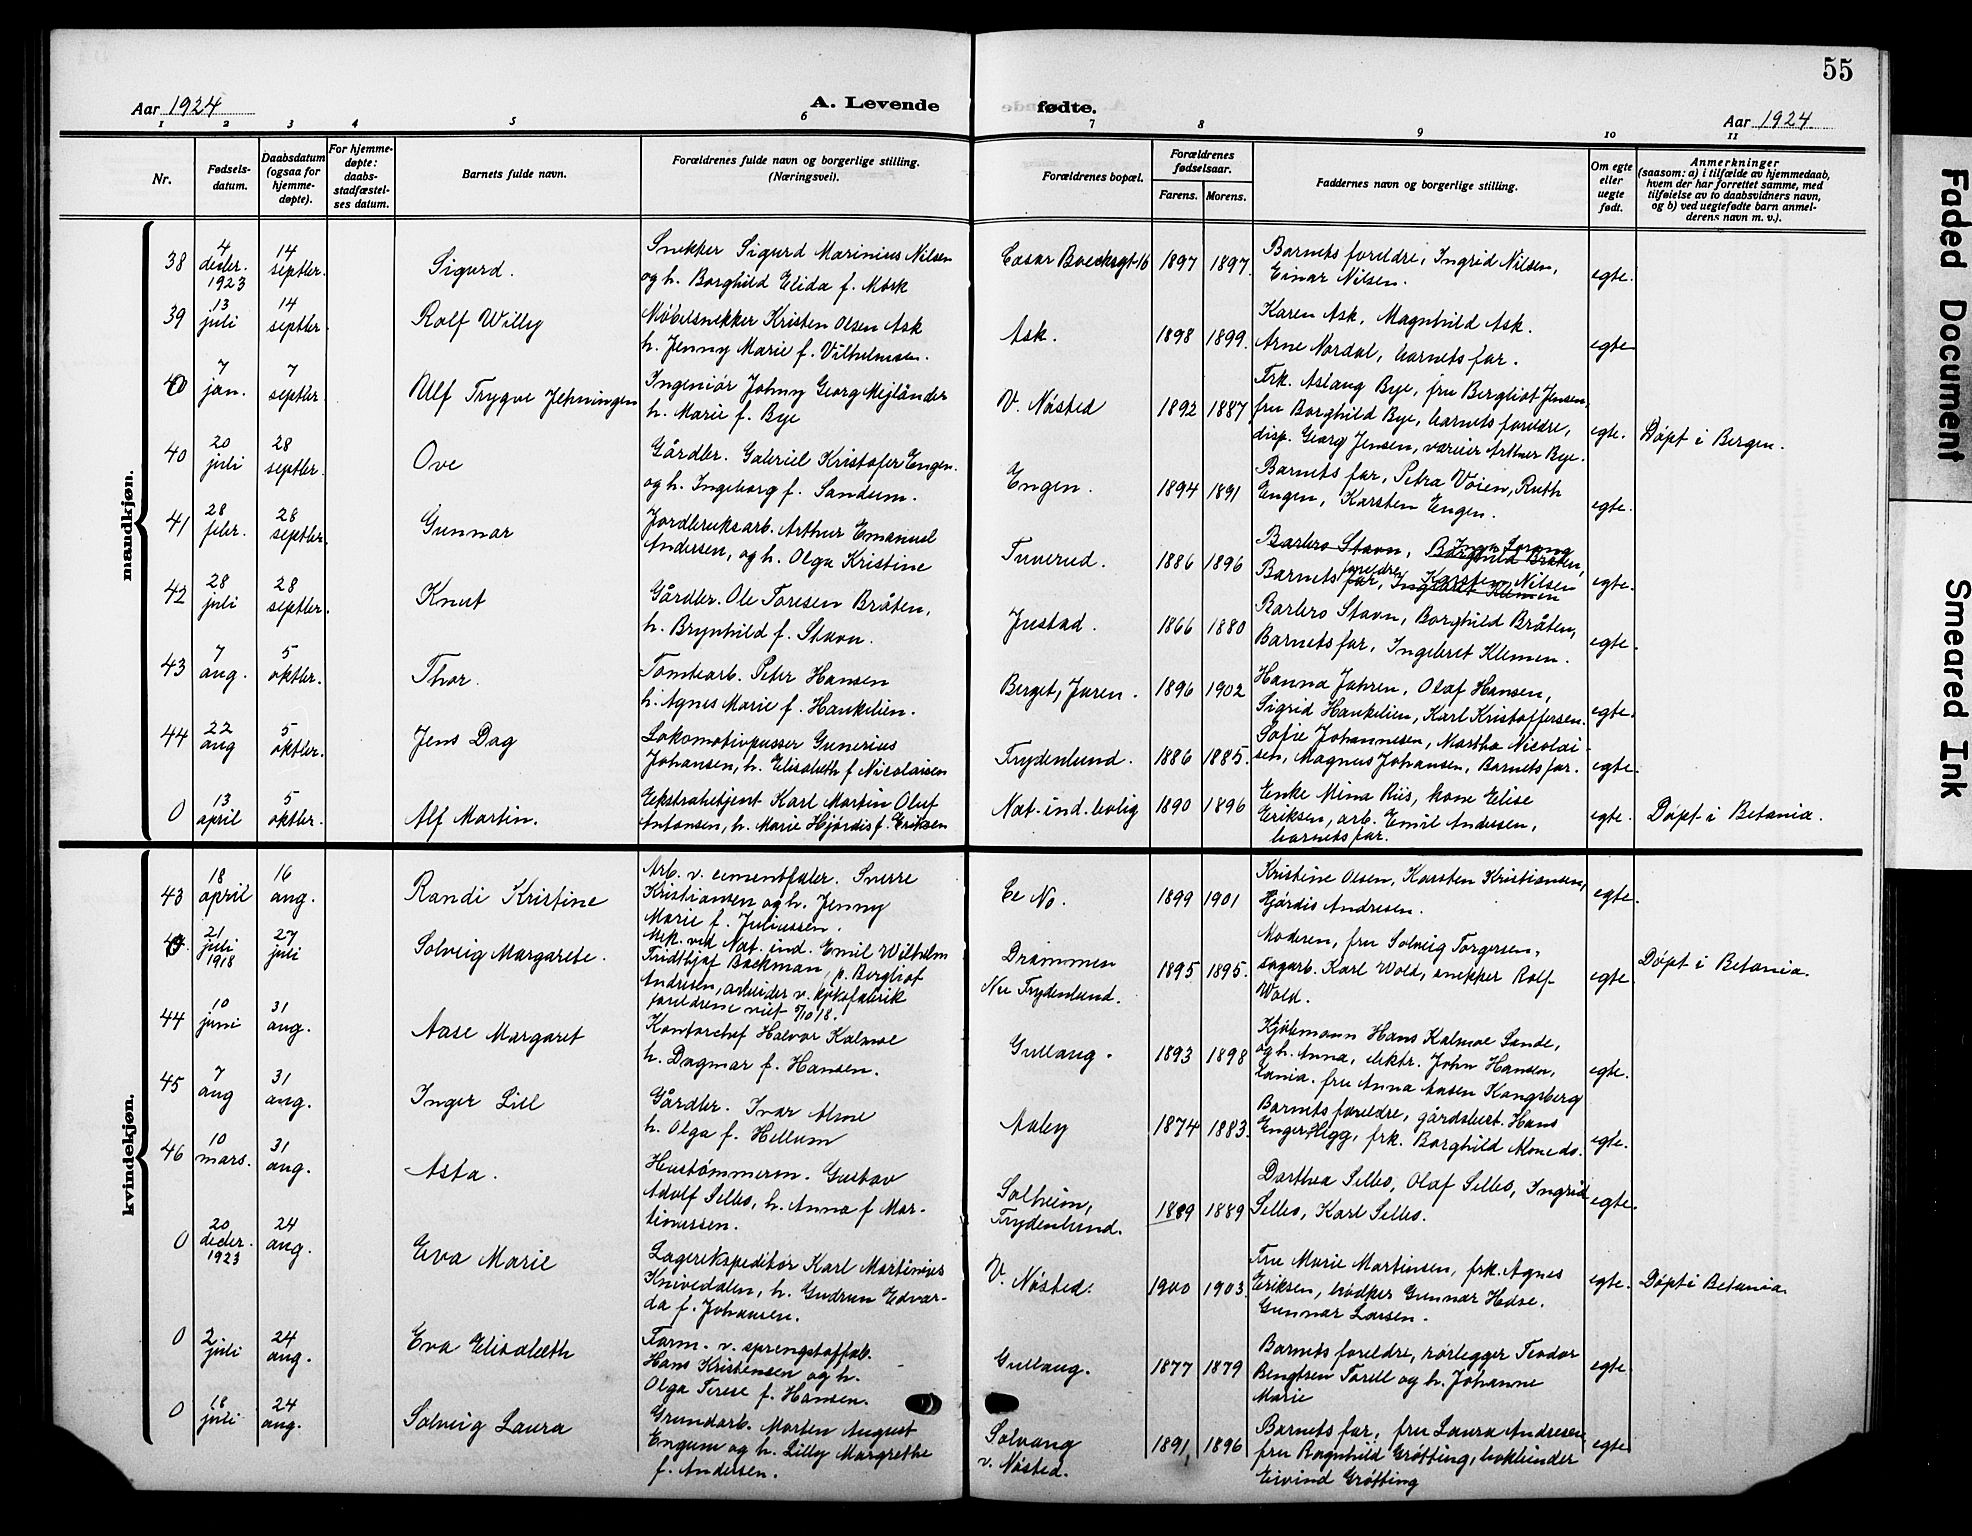 55
Aar 1924
A. Levende
fødte.
Aar 1924
1 2 3 4 5 6 7 8 9 10 11
Nr.
Fødsels-
datum.
Daabsdatum
(ogsaa for
hjemme-
døpte).
For hjemme-
døpte:
daabs-
stadfæstel-
ses datum.
Barnets fulde navn.
Forældrenes fulde navn og borgerlige stilling.
(Næringsvei).
Forældrenes bopæl.
Forældrenes
fødselsaar.
Farens. Morens.
Faddernes navn og borgerlige stilling.
Om egte
eller
uegte
født.
Anmerkninger
(saasom: a) i tilfælde av hjemmedaab,
hvem der har forrettet samme, med
tilføielse av to daabsvidners navn,
og b) ved uegtefødte barn anmel-
derens navn m. v.).
mandkjøn.
38
4
desbr.
1923
14
septbr.
Sigurd.
Snekker Sigurd Marinius Nilsen
og h. Borghild Elida f. Mørk
Cæsar Boecksgt. 16
1897 1897.
Barnets foreldre, Ingrid Nilsen,
Einar Nilsen.
egte.
39
13
juli
14
septbr.
Rolf Willy
Møbelsnekker Kristen Olsen Ask
h. Jenny Marie f. Vilhelmsen.
Ask.
1898 1899.
Karen Ask, Magnhild Ask.
Arne Nordal, barnets far.
egte
0
7
jan.
7
septbr.
Ulf Trygve
Ingeniør Johny Georg Mejlånder
h. Marie f. Bye
V. Nøsted
1892 1887
Frk. Aslaug Bye, fru Bergliot Jensen,
fru Borghild Bye, barnets foreldre,
disp. Georg Jensen, Arthur Bye.
egte.
Døpt i Bergen.
40
20
juli
28
septbr.
Ove
Gårdbr. Gabriel Kristofer Engen.
og h. Ingeborg f. Sandum.
Engen.
1894 1891
Barnets far, Petra Voien, Ruth
Engen, Karsten Engen.
egte.
41
28
febr.
28
septbr.
Gunnar
Jordbruksarb. Arthur Emanuel
Andersen, og h. Olga Kristine
Tuverud.
1886 1896
Barbro Stavn, Borghild Bråten,
Barnets far, Ingebret Klemen
foreldre, Karsten Nilsen
egte.
42
28
juli
28
septbr.
Knut
Gårdbr. Ole Toresen Bråten,
h. Brynhild f. Stavn.
Justad.
1866 1880
Barbro Stavn, Borghild Bråten,
Barnets far, Ingebret Klemen.
egte.
43
7
aug.
5
oktbr.
Thor.
Tomtearb. Peter Hansen
h. Agnes Marie f. Hankelien.
Berget, Jaren.
1896 1902
Hanna Jahren, Olaf Hansen,
Sigrid Hankelien, Karl Kristoffersen.
egte.
44
22
aug
5
oktbr.
Jens Dag
Lokomotivpusser Gunerius
Johansen, h. Elisabeth f Nicolaisen
Frydenlund.
1886 1885.
Sofie Johannesen, Martha Nicolai-
sen, Magnus Johansen, Barnets far.
egte.
0
13
april
5
oktbr.
Alf Martin.
Ekstrabetjent Karl Martin Oluf
Antonsen, h. Marie Hjørdis f. Eriksen
Nat. ind. bolig
1890 1896
Enke Mina Riis, kone Elise
Eriksen, arb. Emil Andersen,
barnets far.
egte.
Døpt i Betania.
kvindekjøn.
43
18
april
16
aug.
Randi Kristine
Arb. v. cementfabr. Snerre
Kristiansen og h. Jenny
Marie f. Juliussen.
Ee No.
1899 1901
Kristine Olsen, Karsten Kristiansen,
Hjørdis Andresen.
egte.
0
21
juli
1918
27
juli
Solveig Margarete.
Mek. ved Nat. ind. Emil Wilhelm
Fridthjof Backman, p. Bergliot
Andresen, arbeider v. kjeksfabrik
foreldrene viet
Drammen
Nu Frydenlund.
1895 1895.
Moderen, fru Solveig Torgersen,
sagarb. Karl Wold, snekker Rolf
Wold.
egte.
Døpt i Betania.
44
10
juni
31
aug.
Aase Margaret
Kontorchef Halvor Kalmoe
h. Dagmar f. Hansen.
Gullaug.
1893 1898
Kjøbmann Hans Kalmoe Sande,
og h. Anna, elektr. John Hansen,
fru Anna Aasen Kongsberg
egte.
45
7
aug
31
aug.
Inger Lill
Gårdbr. Ivar Alme
h. Olga f. Hellum
Aaby
1874 1883.
Barnets foreldre, gårdsbest. Hans
Enger, Hegg, frk. Borghild Alme ds.
egte.
46
10
mars.
31
aug.
Asta.
Hustømmerm. Gustav
Adolf Sellbo, h. Anna f Mar-
tinussen.
Solheim,
Frydenlund.
1889 1889
Dorthea Sellbo, Olaf Sellbo, Ingrid
Sellbo, Karl Sellbo.
egte.
0
20
decbr.
1923
24
aug.
Eva Marie
Lagerekspeditør Karl Martinius
Knivedalen, h. Gudrun Edvar-
da f. Johansen.
V. Nøsted.
1900 1903.
Fru Marie Martinsen, frk. Agnes
Eriksen, bødker Gunnar Hedse.
Gunnar Larsen.
egte.
Døpt i Betania.
0
2
juli
24
aug.
Eva Elisabeth
Form. v. sprengstoffab.
Hans Kristensen og h.
Olga Terese f. Hansen.
Gullaug.
1877 1879
Barnets foreldre, rørlegger Teodor
Bengtsen Torell og h. Johanne
Marie
egte.
0
18
juli
24
aug.
Solveig Laura
Grundarb. Morten August
Engum og h. Lilly Margrethe
f. Andersen.
Solvang
v. Nøsted.
1891 1896
Barnets far, fru Laura Andresen
fru Ragnhild Grøtting, bokbinder
Eivind Grøtting
egte
Faded Document
Smeared Ink